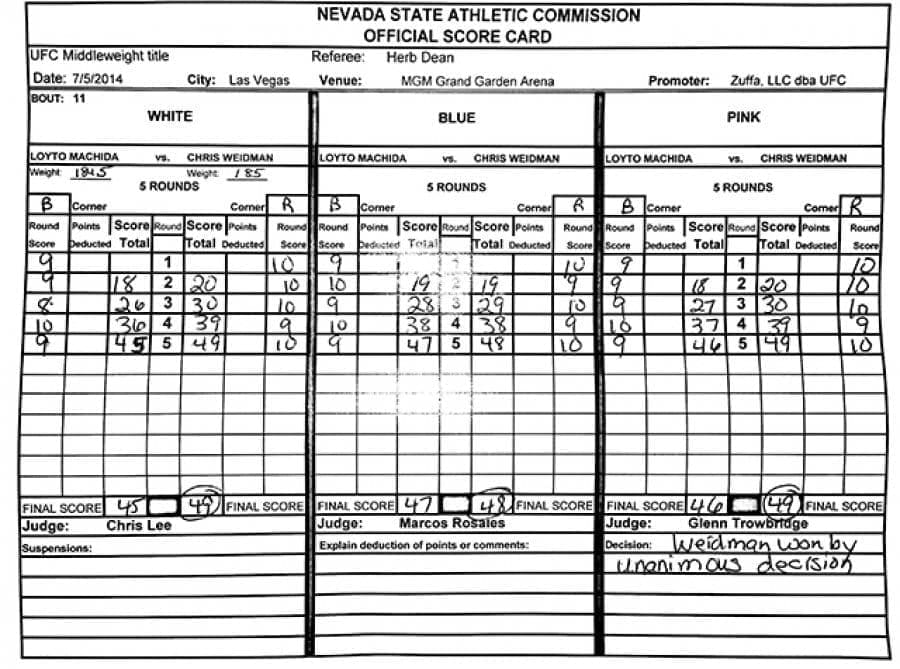 NEVADA STATE ATHLETIC COMMISSION
OFFICIAL SCORE CARD
UFC Middleweight title Referee: Herb Dean
Date: 7/5/2014 City: Las Vegas Venue: MGM Grand Garden Arena Promoter: Zuffa, LLC dba UFC
BOUT: 11
WHITE BLUE PINK
LOYTO MACHIDA vs. CHRIS WEIDMAN LOYTO MACHIDA vs. CHRIS WEIDMAN LOYTO MACHIDA vs. CHRIS WEIDMAN
Weight: 184.5 Weight: 185
5 ROUNDS 5 ROUNDS 5 ROUNDS
B Corner Corner R B Corner Corner R B Corner Corner R
Round Points Score Round Score Points Round Round Points Score Round Score Points Round Round Points Score Round Score Points Round
Score Deducted Total Total Deducted Score Score Deducted Total Total Deducted Score Score Deducted Total Total Deducted Score
9 1 10 9 1 10 9 1 10
9 18 2 20 10 10 19 2 19 9 9 18 2 20 10
8 26 3 30 10 9 28 3 29 10 9 27 3 30 10
10 36 4 39 9 10 38 4 38 9 10 37 4 39 9
9 45 5 49 10 9 47 5 48 10 9 46 5 49 10
FINAL SCORE 45 49 FINAL SCORE FINAL SCORE 47 48 FINAL SCORE FINAL SCORE 46 49 FINAL SCORE
Judge: Chris Lee Judge: Marcos Rosales Judge: Glenn Trowbridge
Suspensions: Explain deduction of points or comments: Decision: Weidman won by
unanimous decision